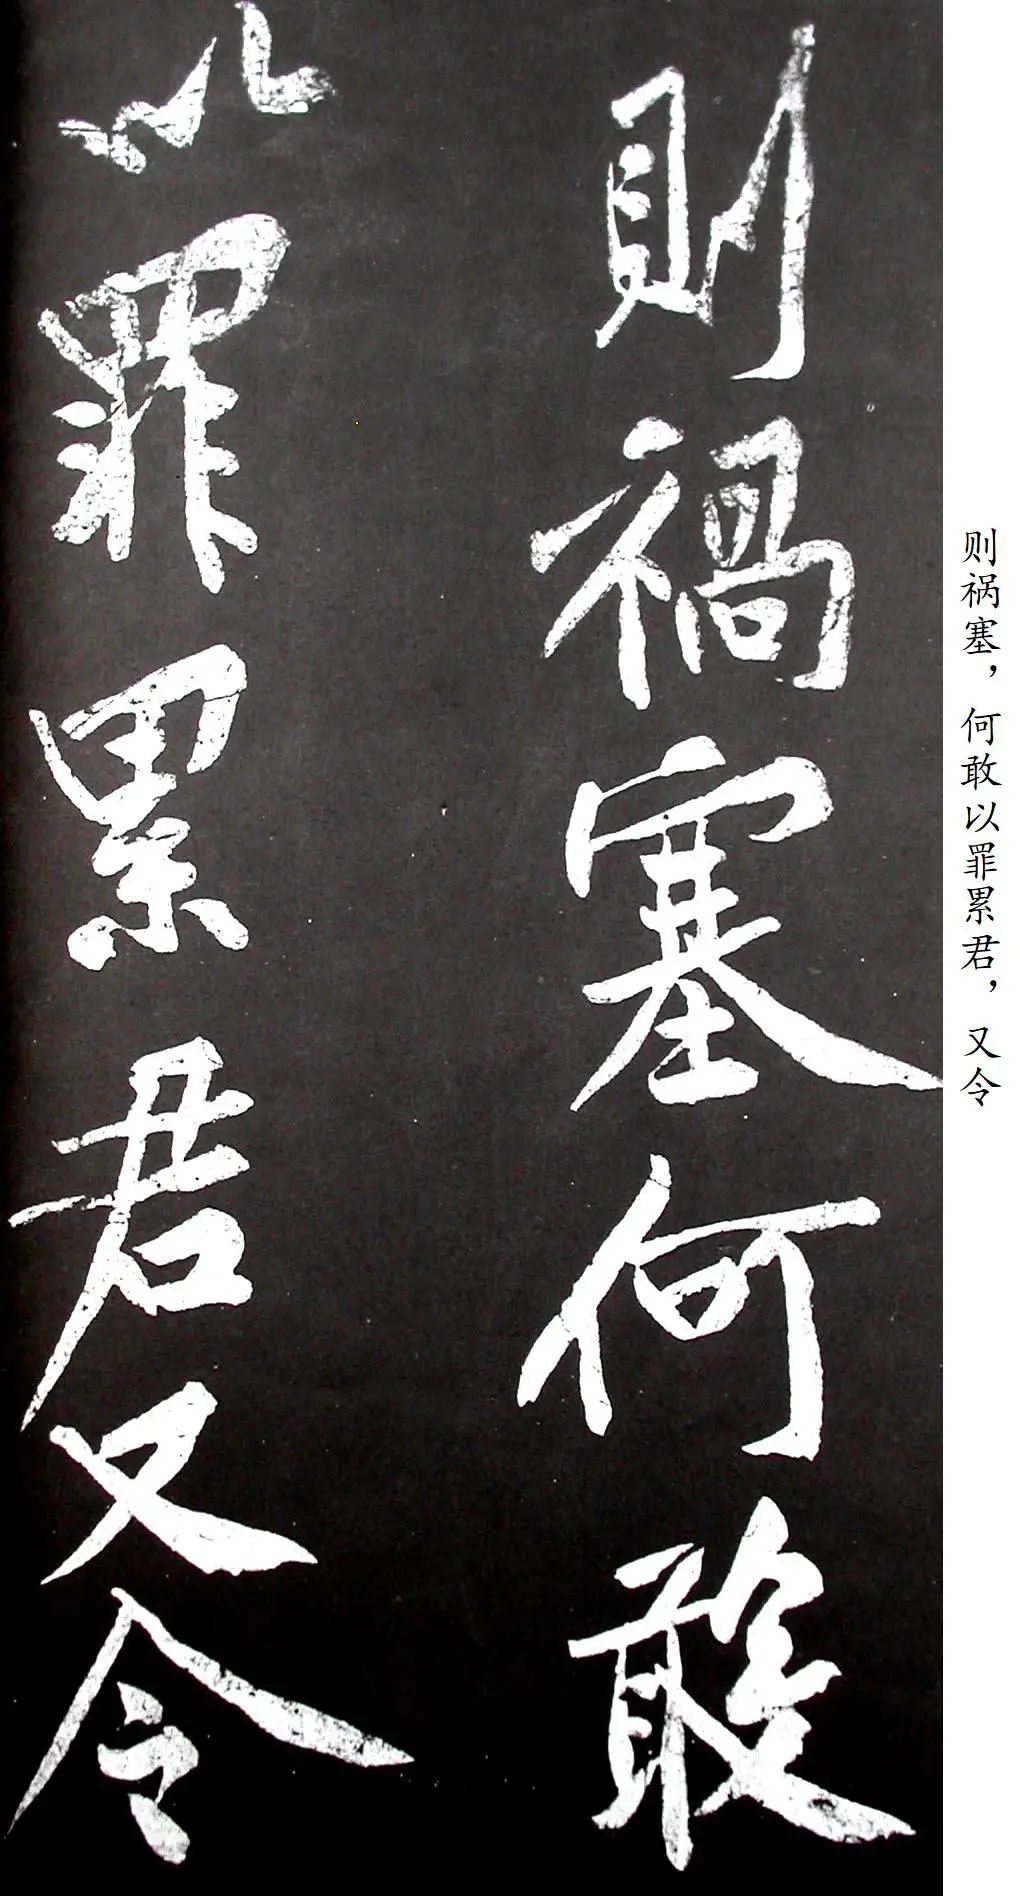 則禍塞何敢
以罪累君又令
则祸塞，何敢以罪累君，又令